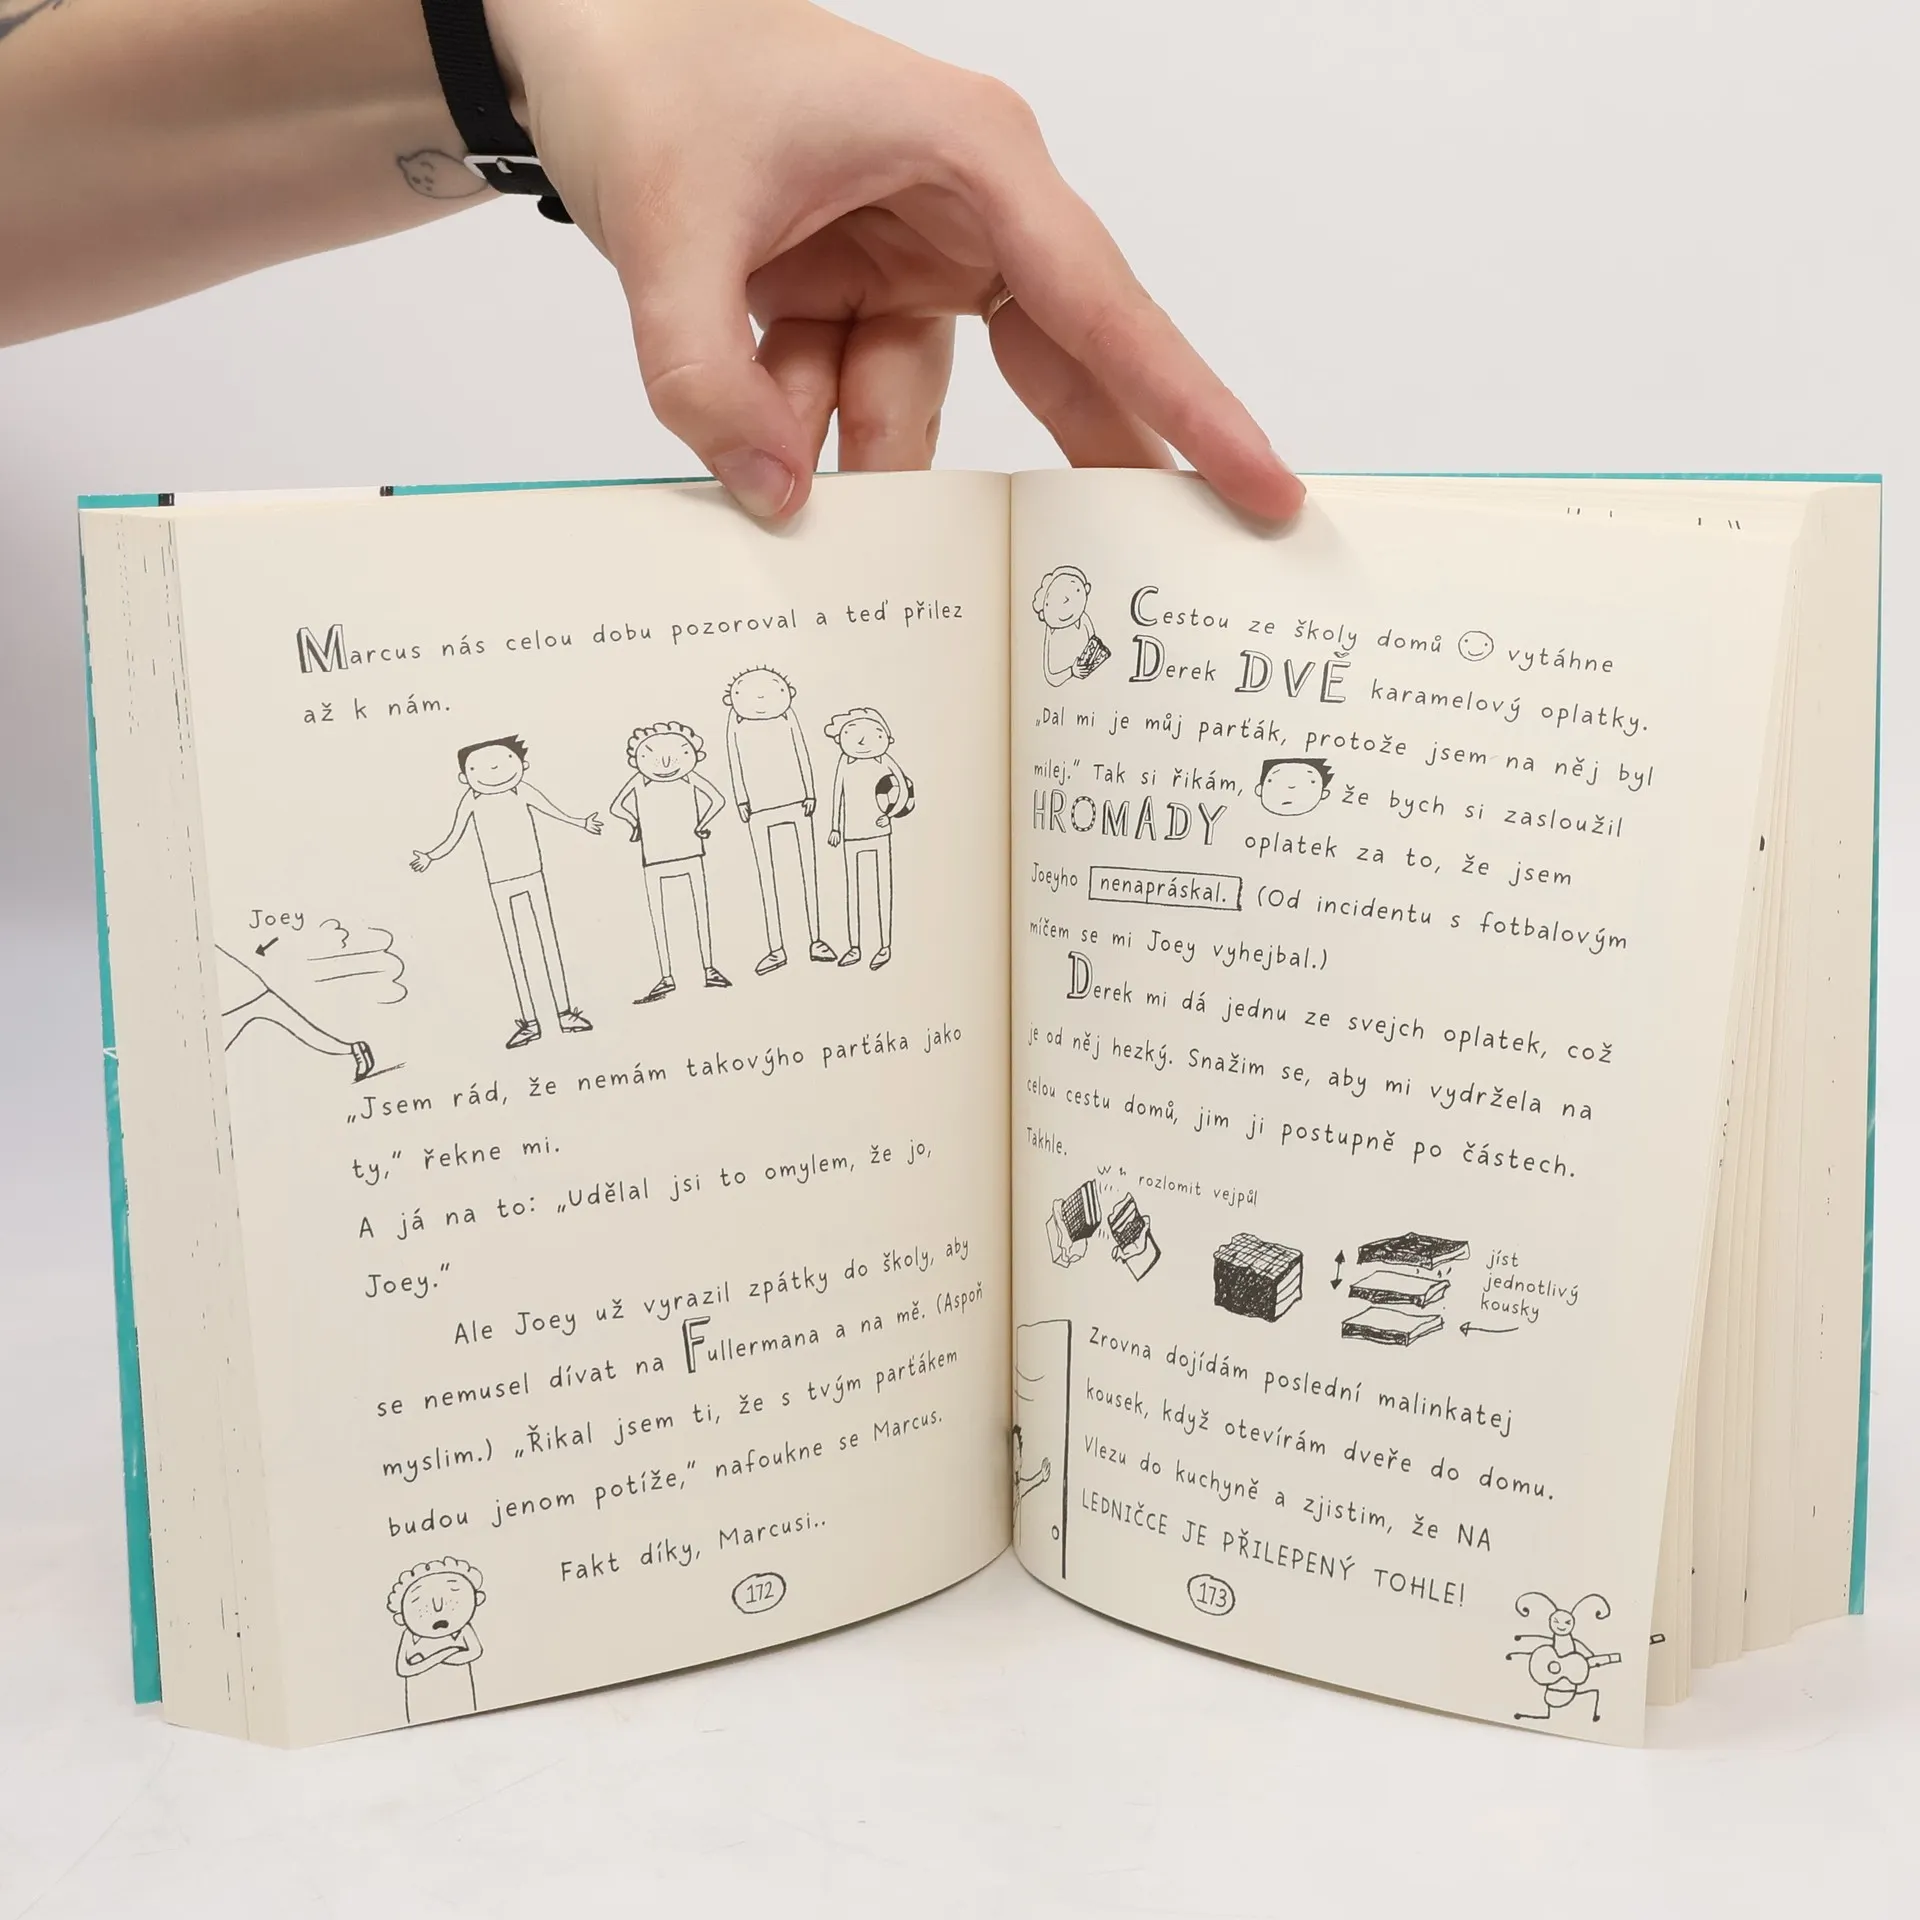 Marcus nás celou dobu pozoroval a teď přilez
až k nám.
Joey
„Jsem rád, že nemám takovýho parťáka jako
ty,“ řekne mi.
A já na to: „Udělal jsi to omylem, že jo,
Joey.“
Ale Joey už vyrazil zpátky do školy, aby
se nemusel dívat na Fullermana a na mě. (Aspoň
myslim.) „Řikal jsem ti, že s tvým parťákem
budou jenom potíže,“ nafoukne se Marcus.
Fakt díky, Marcusi..
172
Cestou ze školy domů vytáhne
Derek DVĚ karamelový oplatky.
„Dal mi je můj parťák, protože jsem na něj byl
milej.“ Tak si řikám, že bych si zasloužil
HROMADY oplatek za to, že jsem
Joeyho nenapráskal. (Od incidentu s fotbalovým
míčem se mi Joey vyhejbal.)
Derek mi dá jednu ze svejch oplatek, což
je od něj hezký. Snažim se, aby mi vydržela na
celou cestu domů, jim ji postupně po částech.
Takhle.
rozlomit vejpůl
jíst
jednotlivý
kousky
Zrovna dojídám poslední malinkatej
kousek, když otevírám dveře do domu.
Vlezu do kuchyně a zjistim, že NA
LEDNIČCE JE PŘILEPENÝ TOHLE!
173